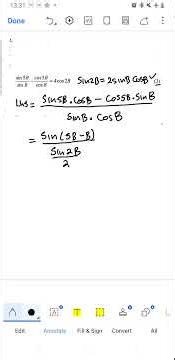 13.31
Done
1.
sin 5B / sin B − cos 5B / cos B = 4 cos 2B Sin2B = 2SinB CosB
LHS = Sin5B.CosB − Cos5B.SinB / SinB.CosB
= Sin(5B−B) / Sin2B / 2
Edit Annotate Fill & Sign Convert All